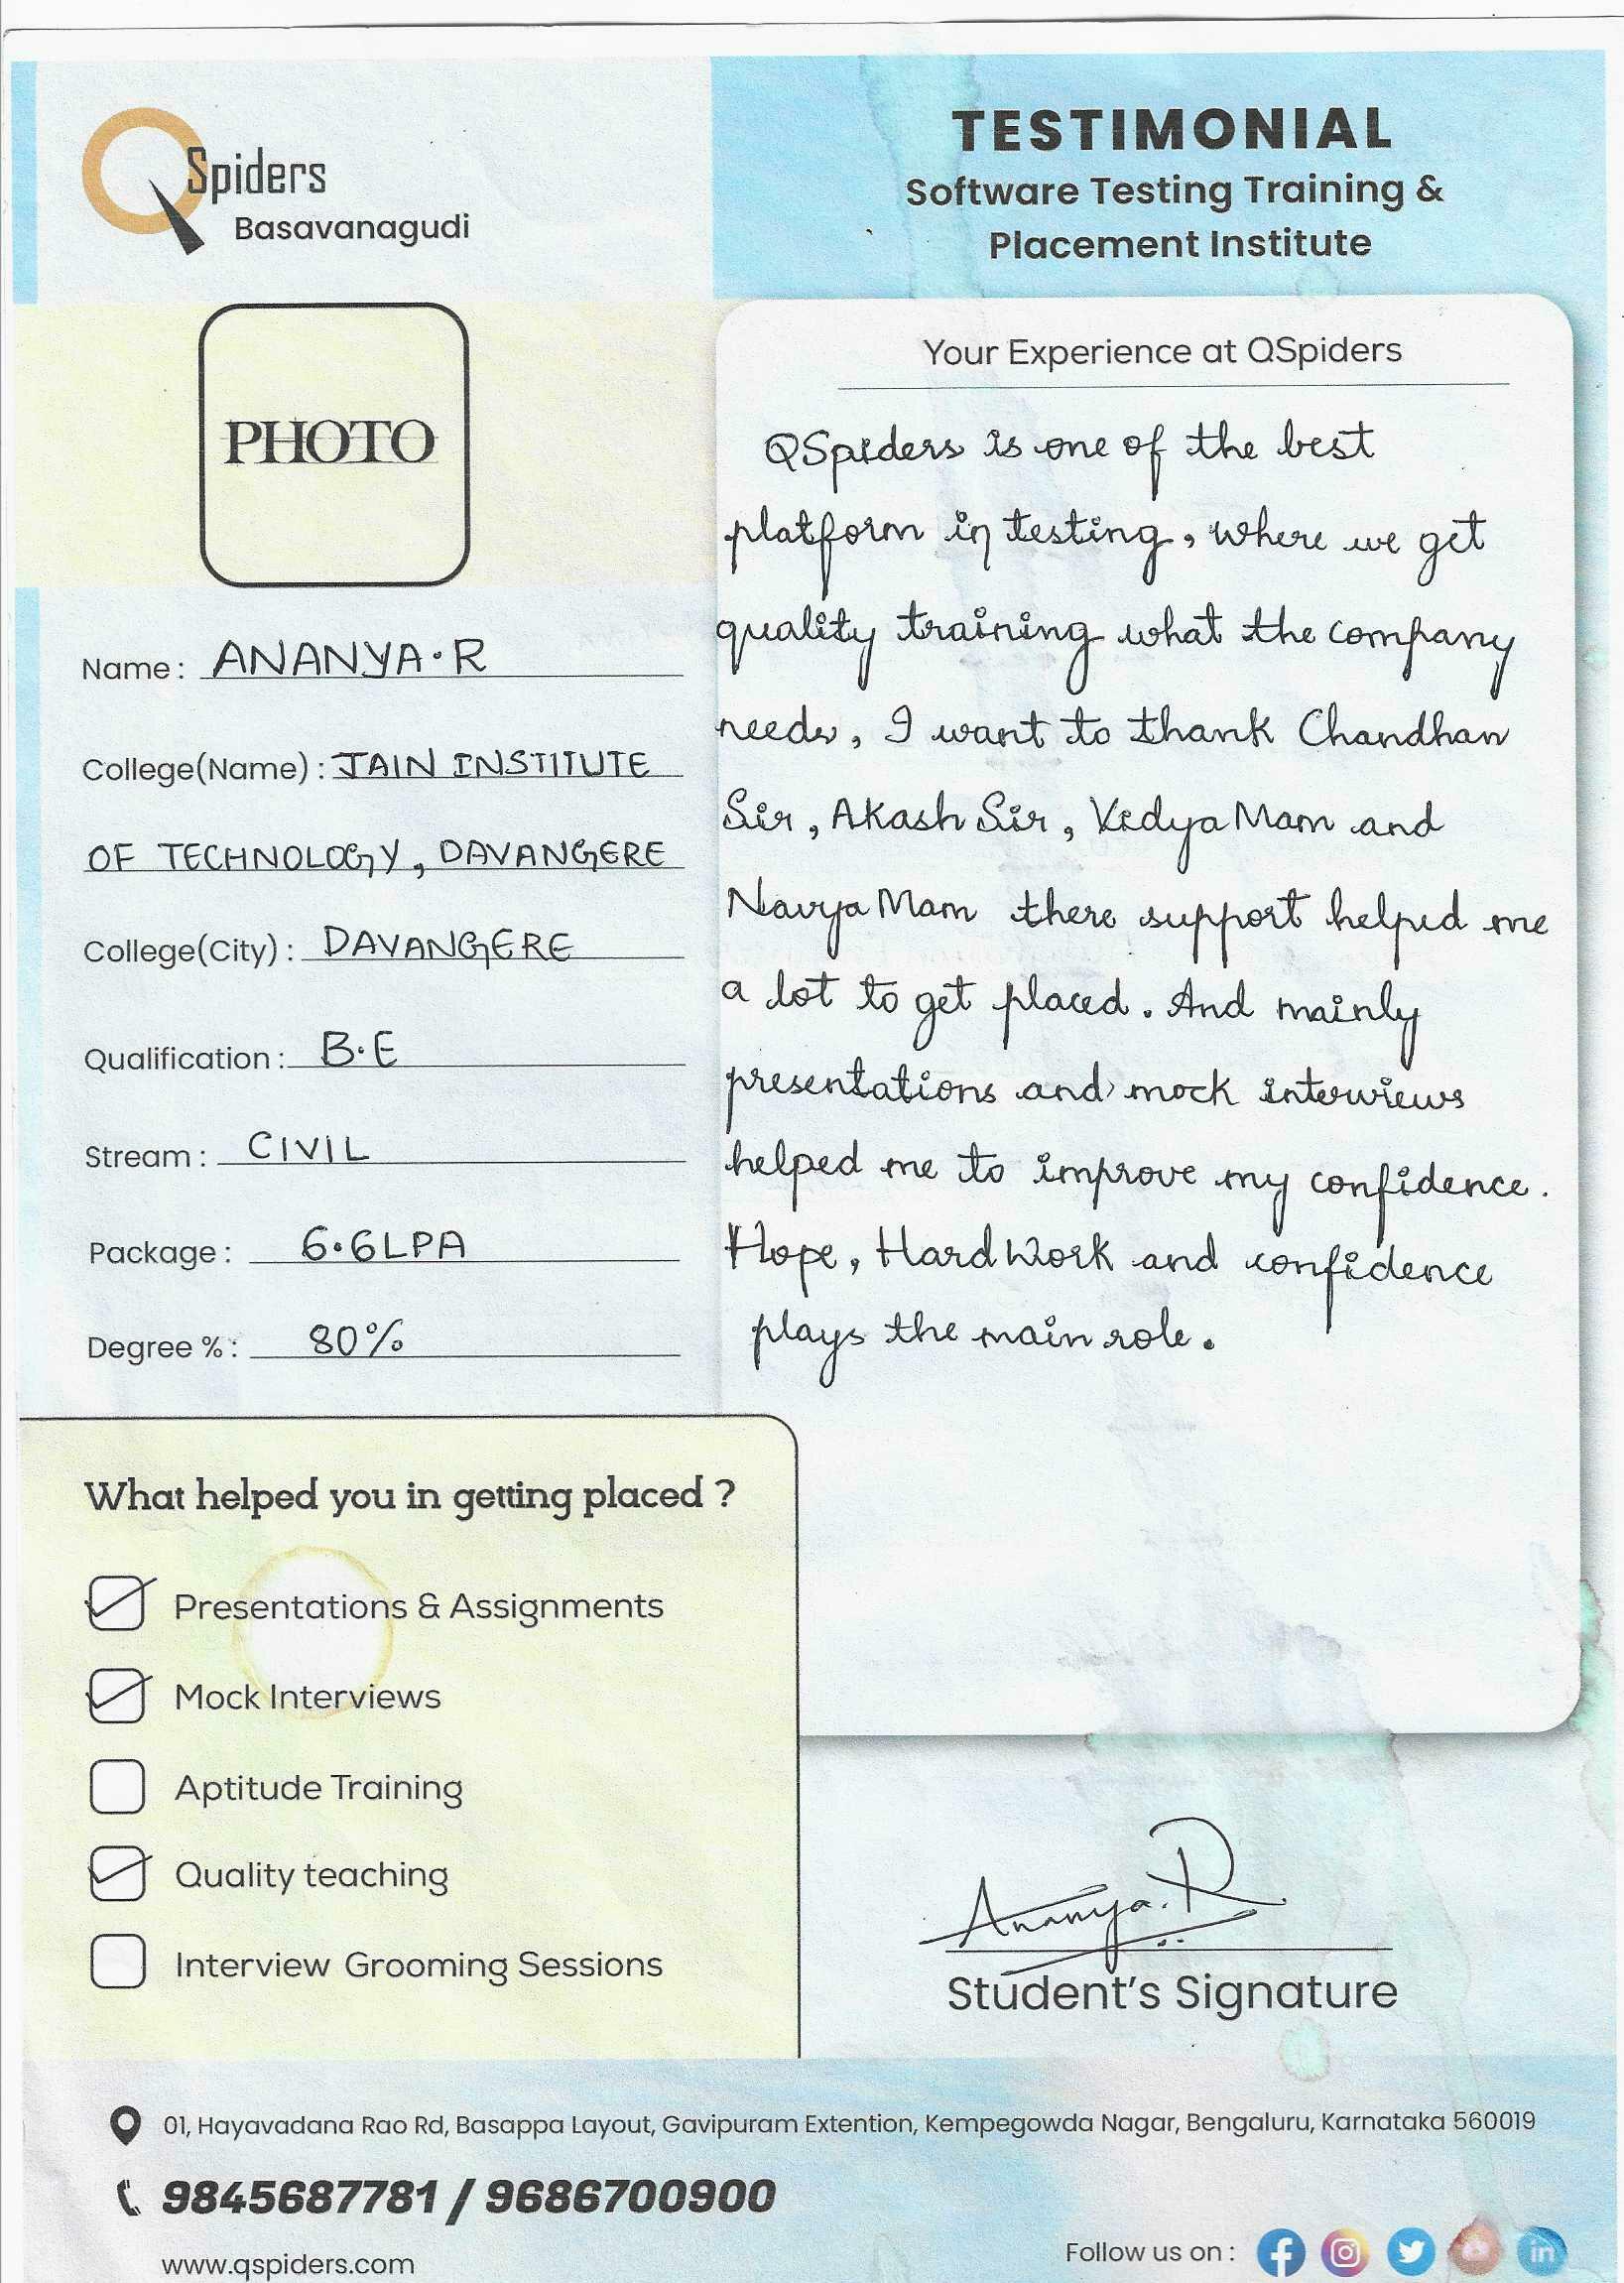 QSpiders
Basavanagudi
TESTIMONIAL
Software Testing Training &
Placement Institute
PHOTO
Name : ANANYA.R
College(Name) : JAIN INSTITUTE
OF TECHNOLOGY, DAVANGERE
College(City) : DAVANGERE
Qualification : B.E
Stream : CIVIL
Package : 6.6LPA
Degree % : 80%
Your Experience at QSpiders
QSpiders is one of the best
platform in testing, where we get
quality training what the company
needs, I want to thank Chandhan
Sir, Akash Sir, Vidya Mam and
Navya Mam there support helped me
a lot to get placed. And mainly
presentations and mock interviews
helped me to improve my confidence.
Hope, Hard Work and confidence
plays the main role.
What helped you in getting placed ?
Presentations & Assignments
Mock Interviews
Aptitude Training
Quality teaching
Interview Grooming Sessions
Ananya.R
Student's Signature
01, Hayavadana Rao Rd, Basappa Layout, Gavipuram Extention, Kempegowda Nagar, Bengaluru, Karnataka 560019
9845687781 / 9686700900
www.qspiders.com
Follow us on :